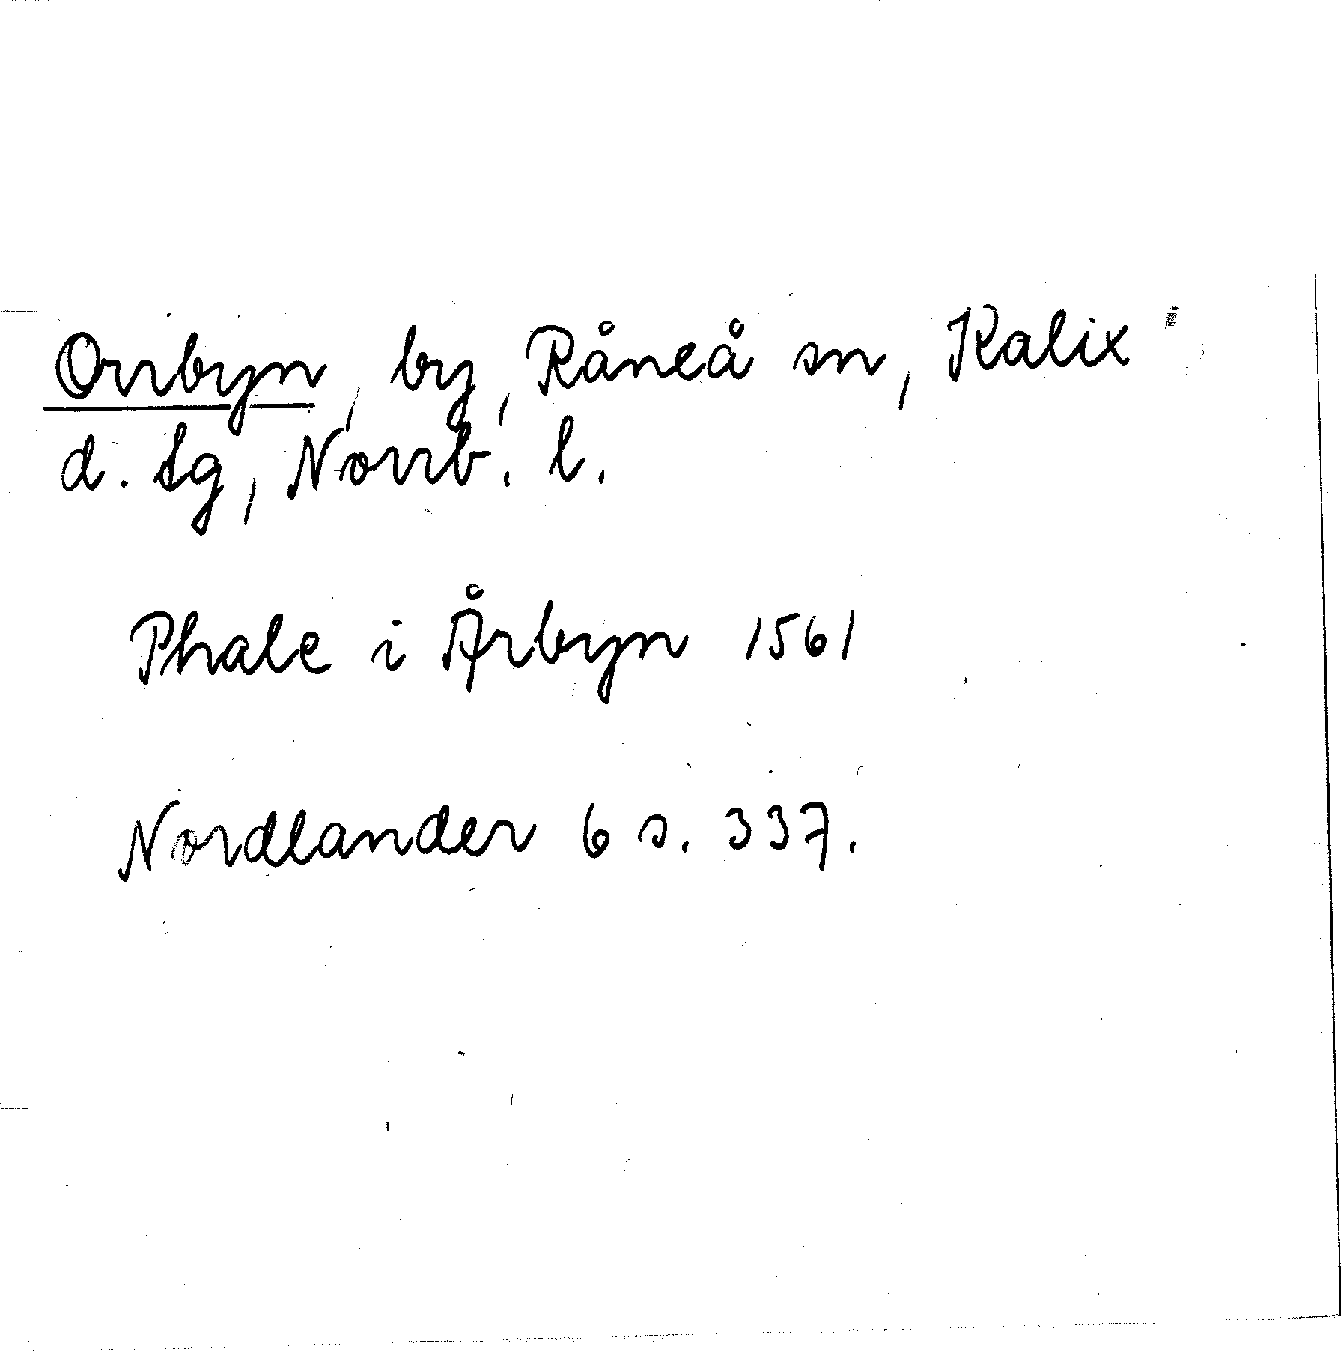 Orrbyn, by, Råneå sn, Kalix
d. tg, Norrb. l.
Phale i Årbyn 1561
Nordlander 6 s. 337.